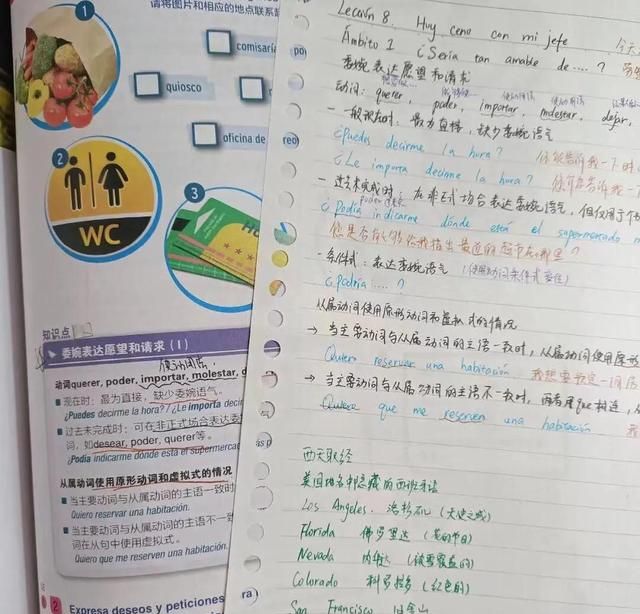 请将图片和相应的地点联系
1
comisarí
quiosco
oficina de
reo
2
WC
3
知识点
委婉表达愿望和请求（I）
使动用法.
动词querer, poder, importar, molestar, d
现在时：最为直接，缺少委婉语气。
¿Puedes decirme la hora? / ¿Le importa decir
过去未完成时：可在非正式场合表达委
词，如desear, poder, querer等。
¿Podía indicarme dónde está el supermercado
从属动词使用原形动词和虚拟式的情况
当主要动词与从属动词的主语一致时
Quiero reservar una habitación.
当主要动词与从属动词的主语不一
词在从句中使用虚拟式。
Quiero que me reserven una habitación.
2 Expresa deseos y peticiones
ra)
Lección 8. Huy ceno con mi jefe
今天
Ámbito 1 ¿Sería tan amable de ....?
委婉表达愿望和请求
动词: querer, poder, importar, molestar, dejar,
- 一般现在时: 最为直接, 缺少委婉语气
¿Puedes decirme la hora?
¿Le importa decirme la hora?
- 过去未完成时: 在非正式场合表达委婉语气, 但仅用于个
¿Podía indicarme dónde está el supermercado
- 条件式: 表达委婉语气
¿Podría ....?
从属动词使用原形动词和虚拟式的情况
→ 当主要动词与从属动词的主语一致时, 从属动词使用原形
Quiero reservar una habitación 我想要预定一间房
→ 当主要动词与从属动词的主语不一致时, 两者用que相连,
Quiere que me reserven una habitación
西天取经
美国地名中隐藏的西班牙语
Los Angeles. 洛杉矶 (天使之城)
Florida 佛罗里达 (花的节日)
Nevada 内华达 (被雪覆盖的)
Colorado 科罗拉多 (红色的)
San Francisco 旧金山